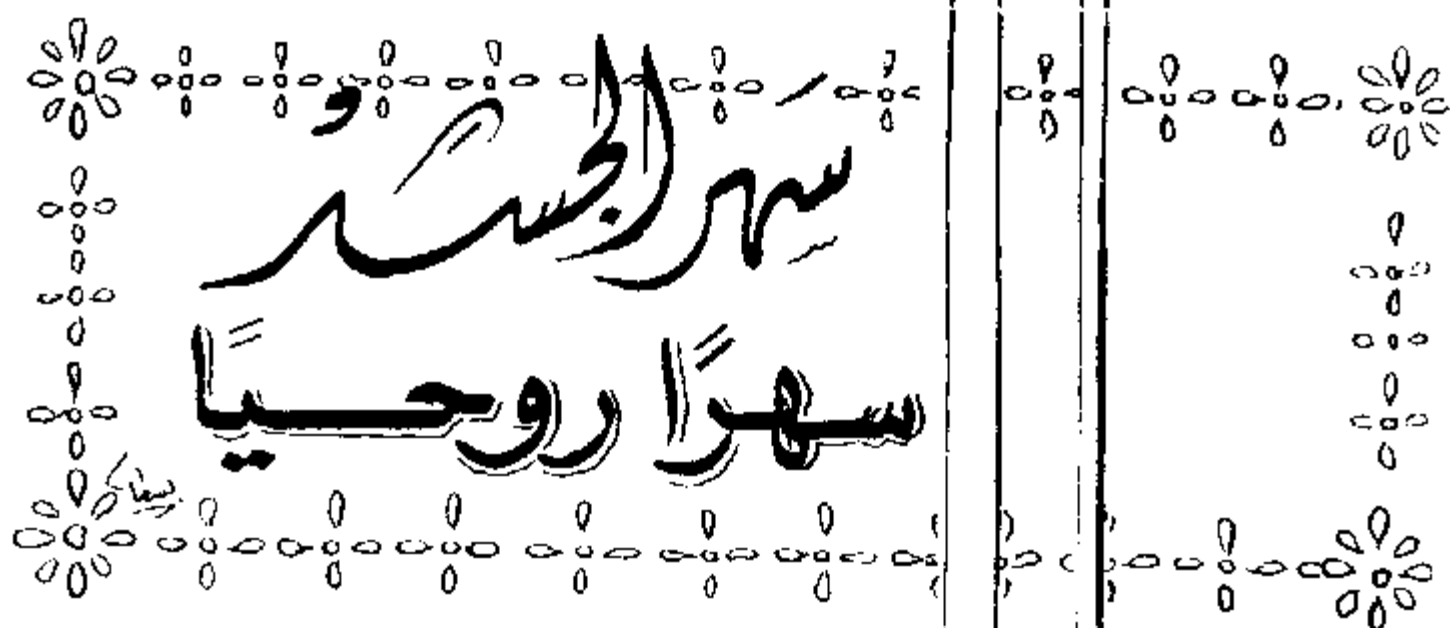 سَهَر الجسَدُ
سهرًا روحيًا